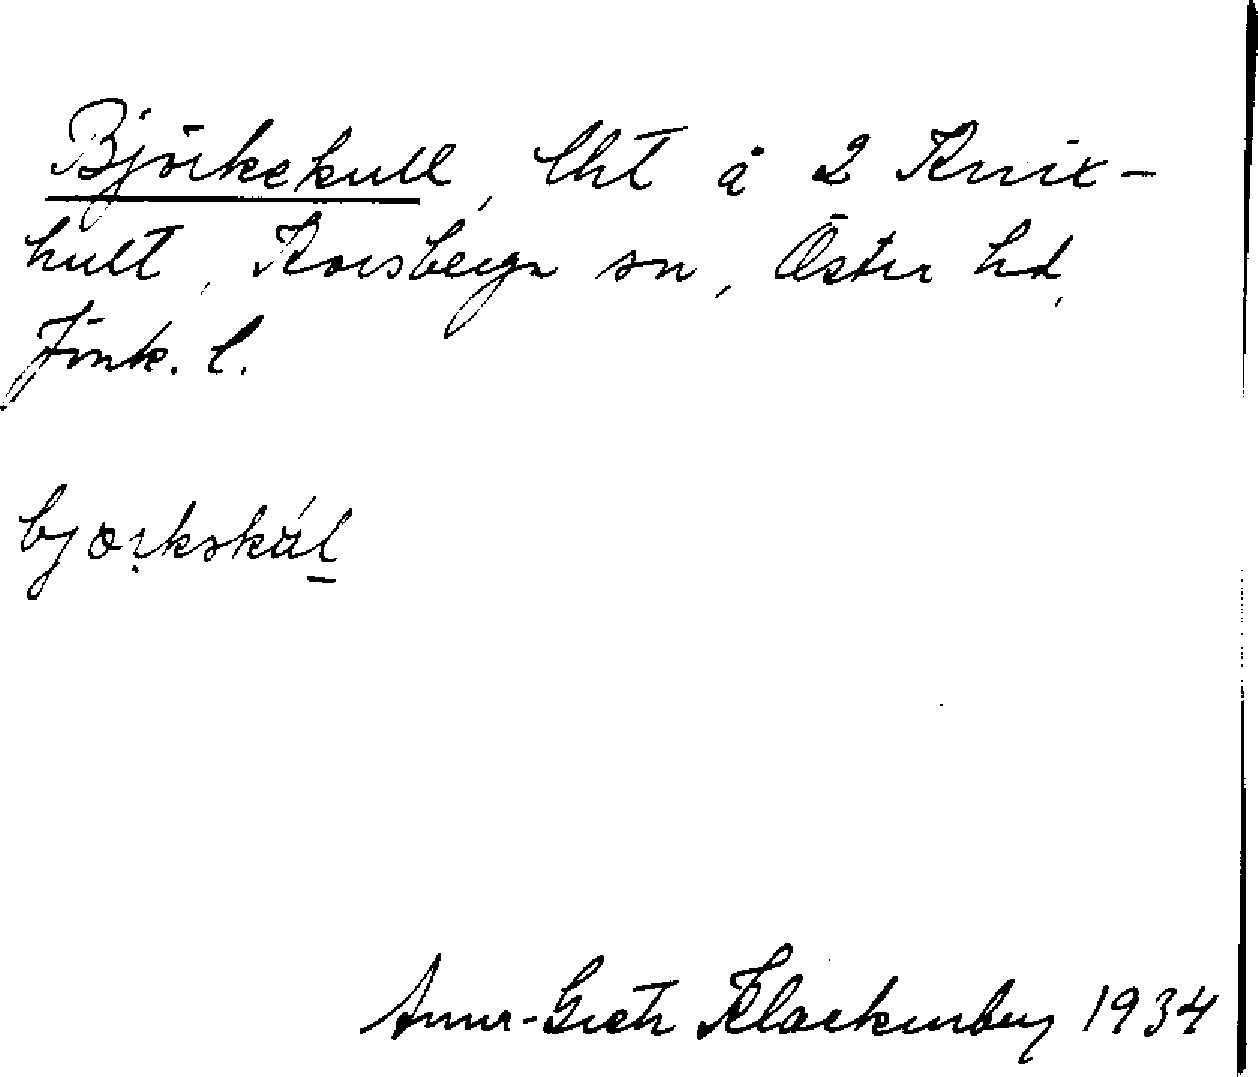 Björkekull, lht å 2 Knix-
hult, Korsberga sn, Östra hd,
Jönk. l.
bjɶrkskul
Anna-Greta Klackenberg 1934